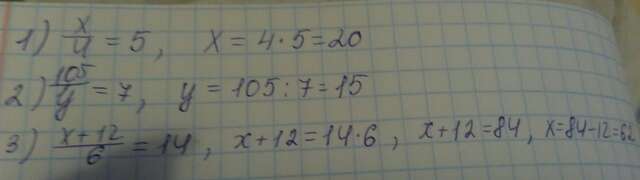 1) x/4 = 5, x = 4·5 = 20
2) 105/y = 7, y = 105 : 7 = 15
3) x+12/6 = 14, x+12 = 14·6, x+12 = 84, x = 84-12 =